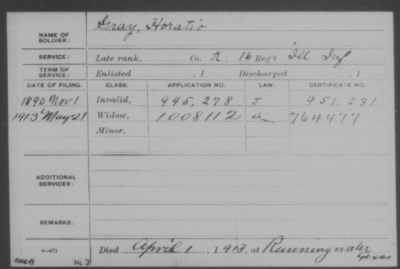 NAME OF SOLDIER: Gray, Horatio
SERVICE: Late rank, Co. K, 16 Reg't Ill Inf
TERM OF SERVICE: Enlisted , 1 Discharged , 1
DATE OF FILING. CLASS. APPLICATION NO. LAW. CERTIFICATE NO.
1890 Nov 1 Invalid, 995,278 J 951,231
1913 May 21 Widow, 1008112 a 764477
Minor,
ADDITIONAL SERVICES:
REMARKS:
Died April 1, 1913, at Runningwater
Texas